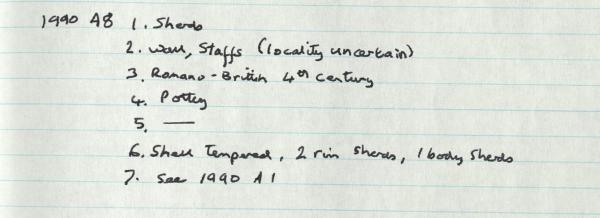 1990 A8 1. Sherds
2. Wall, Staffs (locality uncertain)
3. Romano-British 4th century
4. Pottery
5. —
6. Shell Tempered, 2 rim sherds, 1 body sherds
7. See 1990 A1